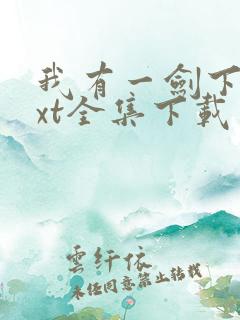 我有一劍下
xt全集下載
雲纤依
未经同意禁止转载